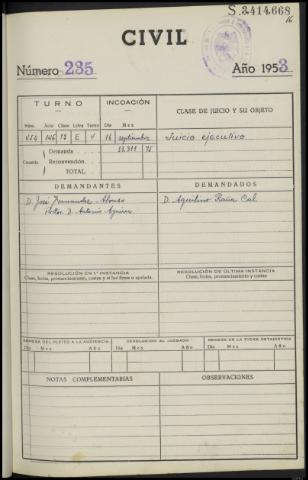 S.3414.668
16
CIVIL
Número 235 Año 1953
TURNO INCOACIÓN CLASE DE JUICIO Y SU OBJETO
Núm. Año Clase Letra Turno Día Mes
E 16 septiembre Juicio ejecutivo
Cuantía Demanda 75
Reconvención.
TOTAL
DEMANDANTES DEMANDADOS
D. José Fernandez Alonso D. Agustino Raña Cal
D. Antonio
RESOLUCIÓN EN 1.ª INSTANCIA RESOLUCIÓN DE ÚLTIMA INSTANCIA
Clase, fecha, pronunciamiento, costas y si fue firme o apelada. Clase, fecha, pronunciamiento y costas
REMESA DEL PLEITO A LA AUDIENCIA DEVOLUCIÓN AL JUZGADO REMISIÓN DE LA FICHA ESTADÍSTICA
Día Mes Año Día Mes Año Día Mes Año
NOTAS COMPLEMENTARIAS OBSERVACIONES